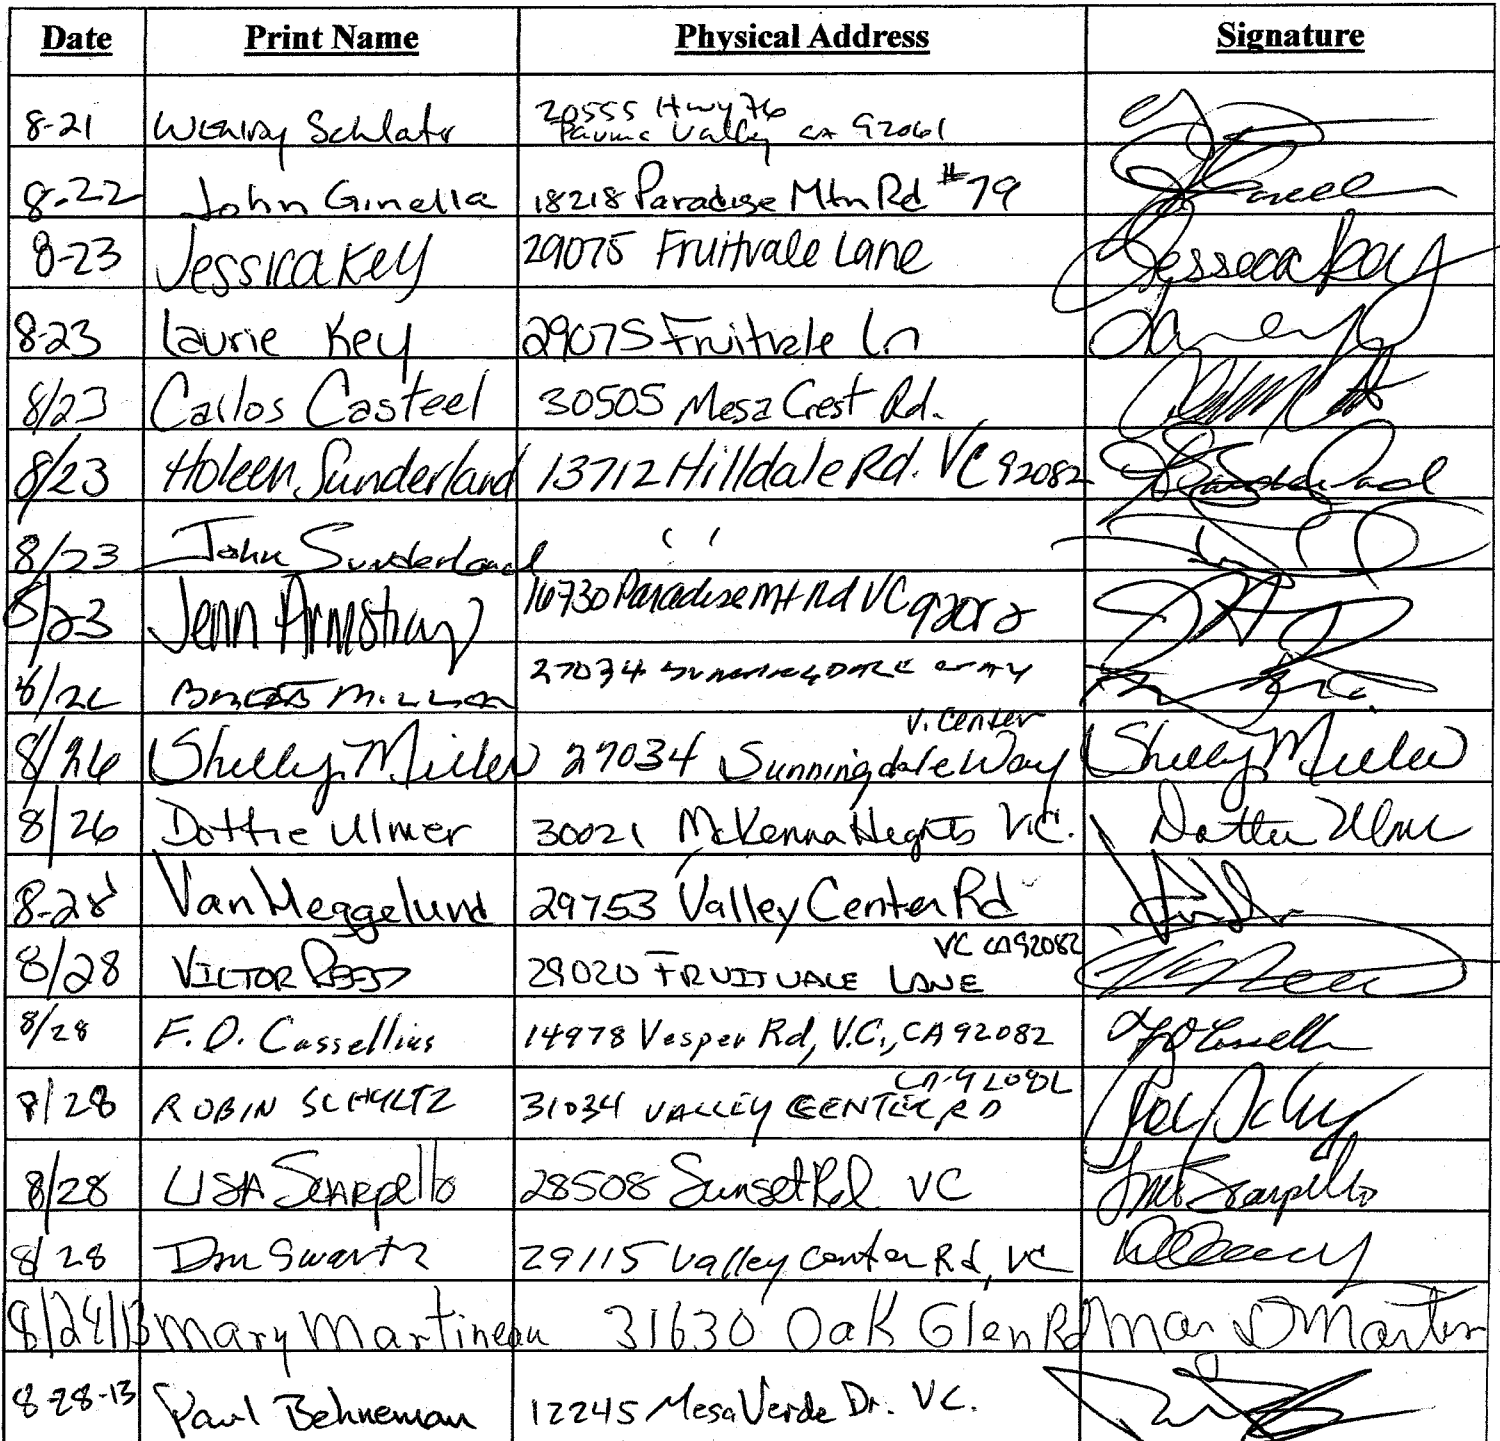 Date Print Name Physical Address Signature
8-21 Wendy Schlatr 20555 Hwy 76
Pauma Valley CA 92061
8-22 John Ginella 18218 Paradise Mtn Rd #79
8-23 Jessica Key 29075 Fruitvale Lane Jessica Key
8-23 Laurie Key 29075 Fruitvale Ln
8/23 Carlos Casteel 30505 Mesa Crest Rd.
8/23 Holeen Sunderland 13712 Hilldale Rd. VC 92082
8/23 John Sunderland ''
8/23 Jenn Armstrong 16730 Paradise Mt Rd VC 92082
8/26 Miller 27034 Way
V. Center
8/26 Shelly Miller 27034 Sunningdale Way Shelly Miller
8/26 Dottie Ulmer 30021 McKenna Heghts V.C. Dottie Ulmer
8-28 Van Heggelund 29753 Valley Center Rd
VC CA 92082
8/28 VICTOR REED 29020 FRUITVALE LANE
8/28 F.D. Cassellius 14978 Vesper Rd, V.C., CA 92082
CA 92082
8/28 ROBIN SCHULTZ 31034 VALLEY CENTER RD
8/28 LISA Scarpello 28508 Sunset Rd VC Scarpello
8/28 Don Swartz 29115 Valley Center Rd, VC
8/24/13 Mary Martineau 31630 Oak Glen Rd
8-28-13 Paul Behneman 12245 Mesa Verde Dr. VC.